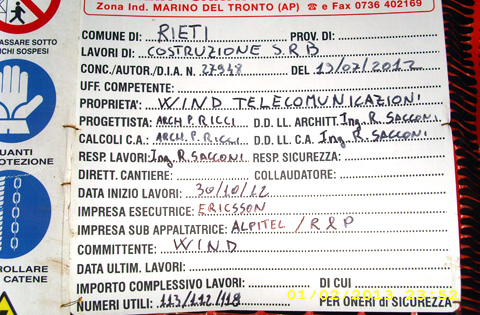 Zona Ind. MARINO DEL TRONTO (AP) ☎ e Fax 0736 402169
COMUNE DI: RIETI PROV. DI:
LAVORI DI: COSTRUZIONE S.R.B
CONC./AUTOR./D.I.A. N. 27948 DEL 19/07/2012
UFF. COMPETENTE:
PROPRIETA': WIND TELECOMUNICAZIONI
PROGETTISTA: ARCH. P. RICCI D.D. LL. ARCHITT. Ing. R. SACCONI
CALCOLI C.A.: ARCH. P. RICCI D.D. LL. C.A. Ing. R. SACCONI
RESP. LAVORI: Ing. R. SACCONI RESP. SICUREZZA:
DIRETT. CANTIERE: COLLAUDATORE:
DATA INIZIO LAVORI: 30/10/12
IMPRESA ESECUTRICE: ERICSSON
IMPRESA SUB APPALTATRICE: ALPITEL / R&P
COMMITTENTE: WIND
DATA ULTIM. LAVORI:
IMPORTO COMPLESSIVO LAVORI: DI CUI
NUMERI UTILI: 113/112/118 PER ONERI di SICUREZZA
PASSARE SOTTO
CHI SOSPESI
GUANTI
ROTEZIONE
ROLLARE
CATENE
01/02/2013 23:52